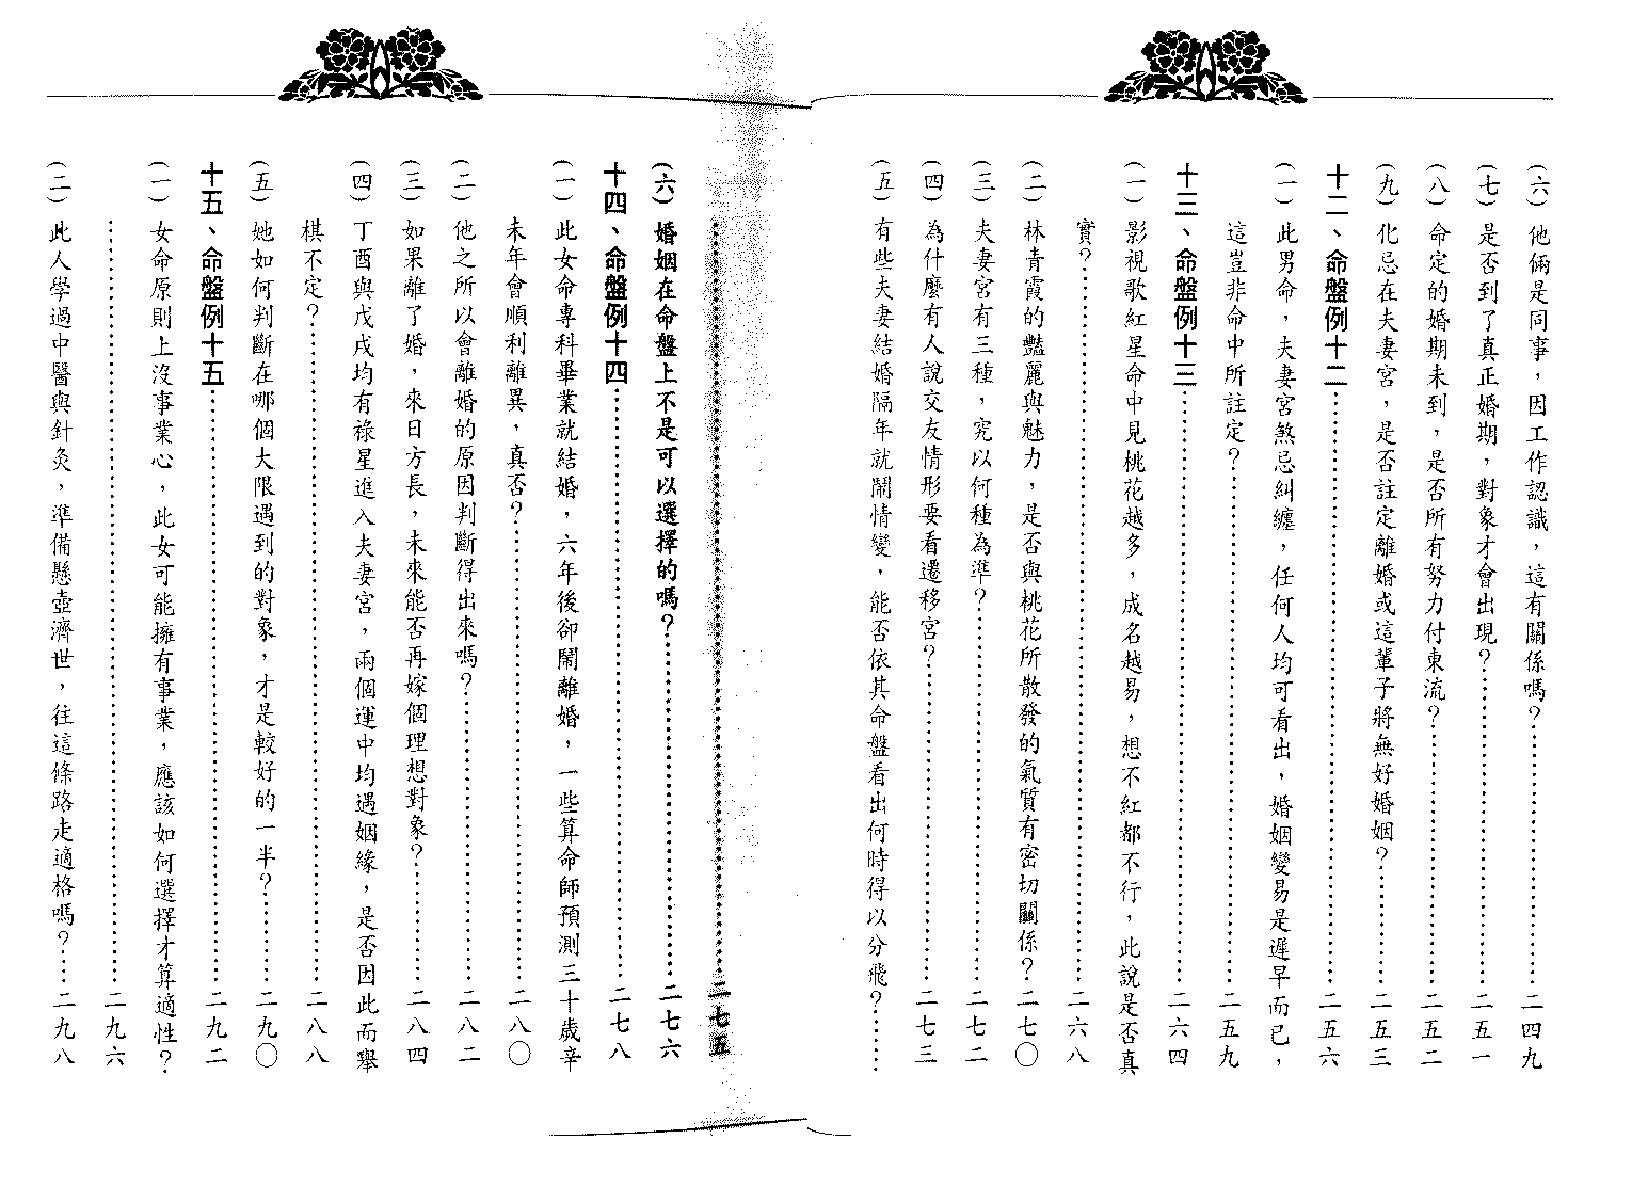 （六）他倆是同事，因工作認識，這有關係嗎？……二四九
（七）是否到了真正婚期，對象才會出現？……二五一
（八）命定的婚期未到，是否所有努力付東流？……二五二
（九）化忌在夫妻宮，是否註定離婚或這輩子將無好婚姻？……二五三
十二、命盤例十二……二五六
（一）此男命，夫妻宮煞忌糾纏，任何人均可看出，婚姻變易是遲早而已，
這豈非命中所註定？……二五九
十三、命盤例十三……二六四
（一）影視歌紅星命中見桃花越多，成名越易，想不紅都不行，此說是否真
實？……二六八
（二）林青霞的豔麗與魅力，是否與桃花所散發的氣質有密切關係？……二七〇
（三）夫妻宮有三種，究以何種為準？……二七二
（四）為什麼有人說交友情形要看遷移宮？……二七三
（五）有些夫妻結婚隔年就鬧情變，能否依其命盤看出何時得以分飛？……
……二七五
（六）婚姻在命盤上不是可以選擇的嗎？……二七六
十四、命盤例十四……二七八
（一）此女命專科畢業就結婚，六年後卻鬧離婚，一些算命師預測三十歲辛
未年會順利離異，真否？……二八〇
（二）他之所以會離婚的原因判斷得出來嗎？……二八二
（三）如果離了婚，來日方長，未來能否再嫁個理想對象？……二八四
（四）丁酉與戊戌均有祿星進入夫妻宮，兩個運中均遇姻緣，是否因此而舉
棋不定？……二八八
（五）她如何判斷在哪個大限遇到的對象，才是較好的一半？……二九〇
十五、命盤例十五……二九二
（一）女命原則上沒事業心，此女可能擁有事業，應該如何選擇才算適性？
……二九六
（二）此人學過中醫與針灸，準備懸壺濟世，往這條路走適格嗎？……二九八